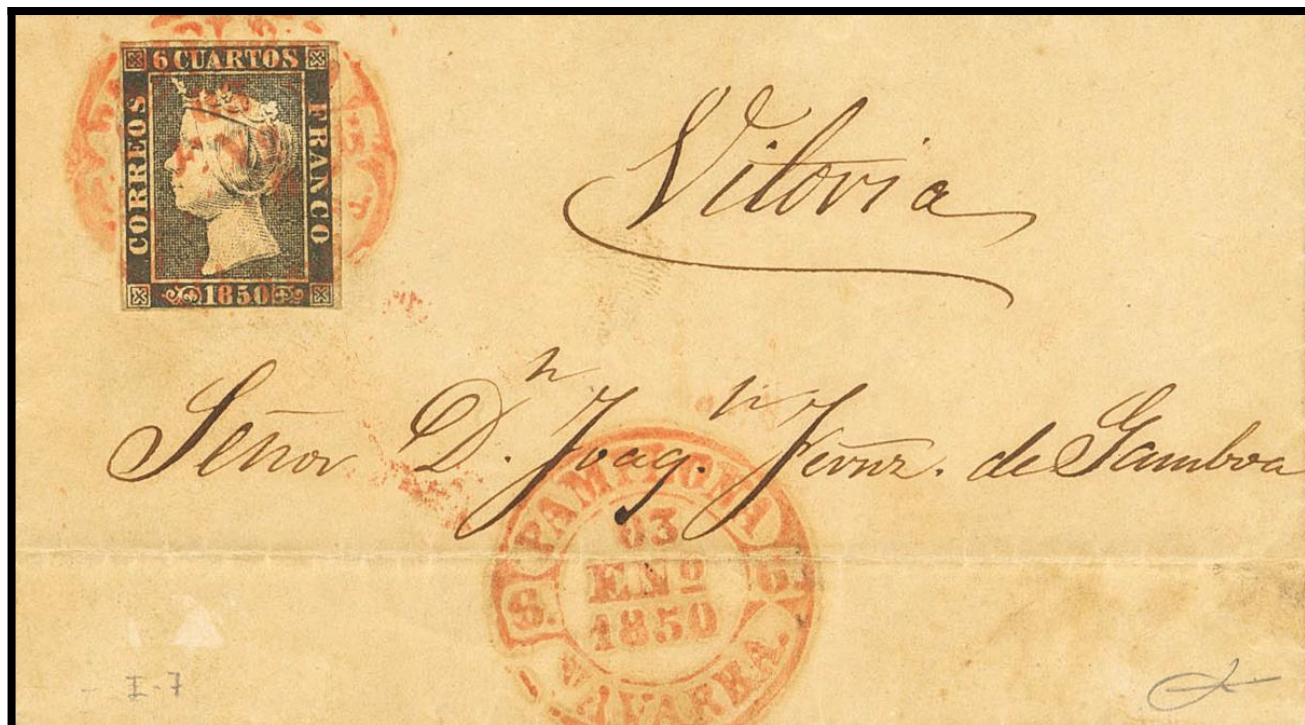 6 CUARTOS
CORREOS
FRANCO
1850
Vitoria
Señor Dn. Joaqn. Fernz. de Gamboa
PAMPLONA
03
ENº
1850
S.
6.
NAVARRA.
I-7